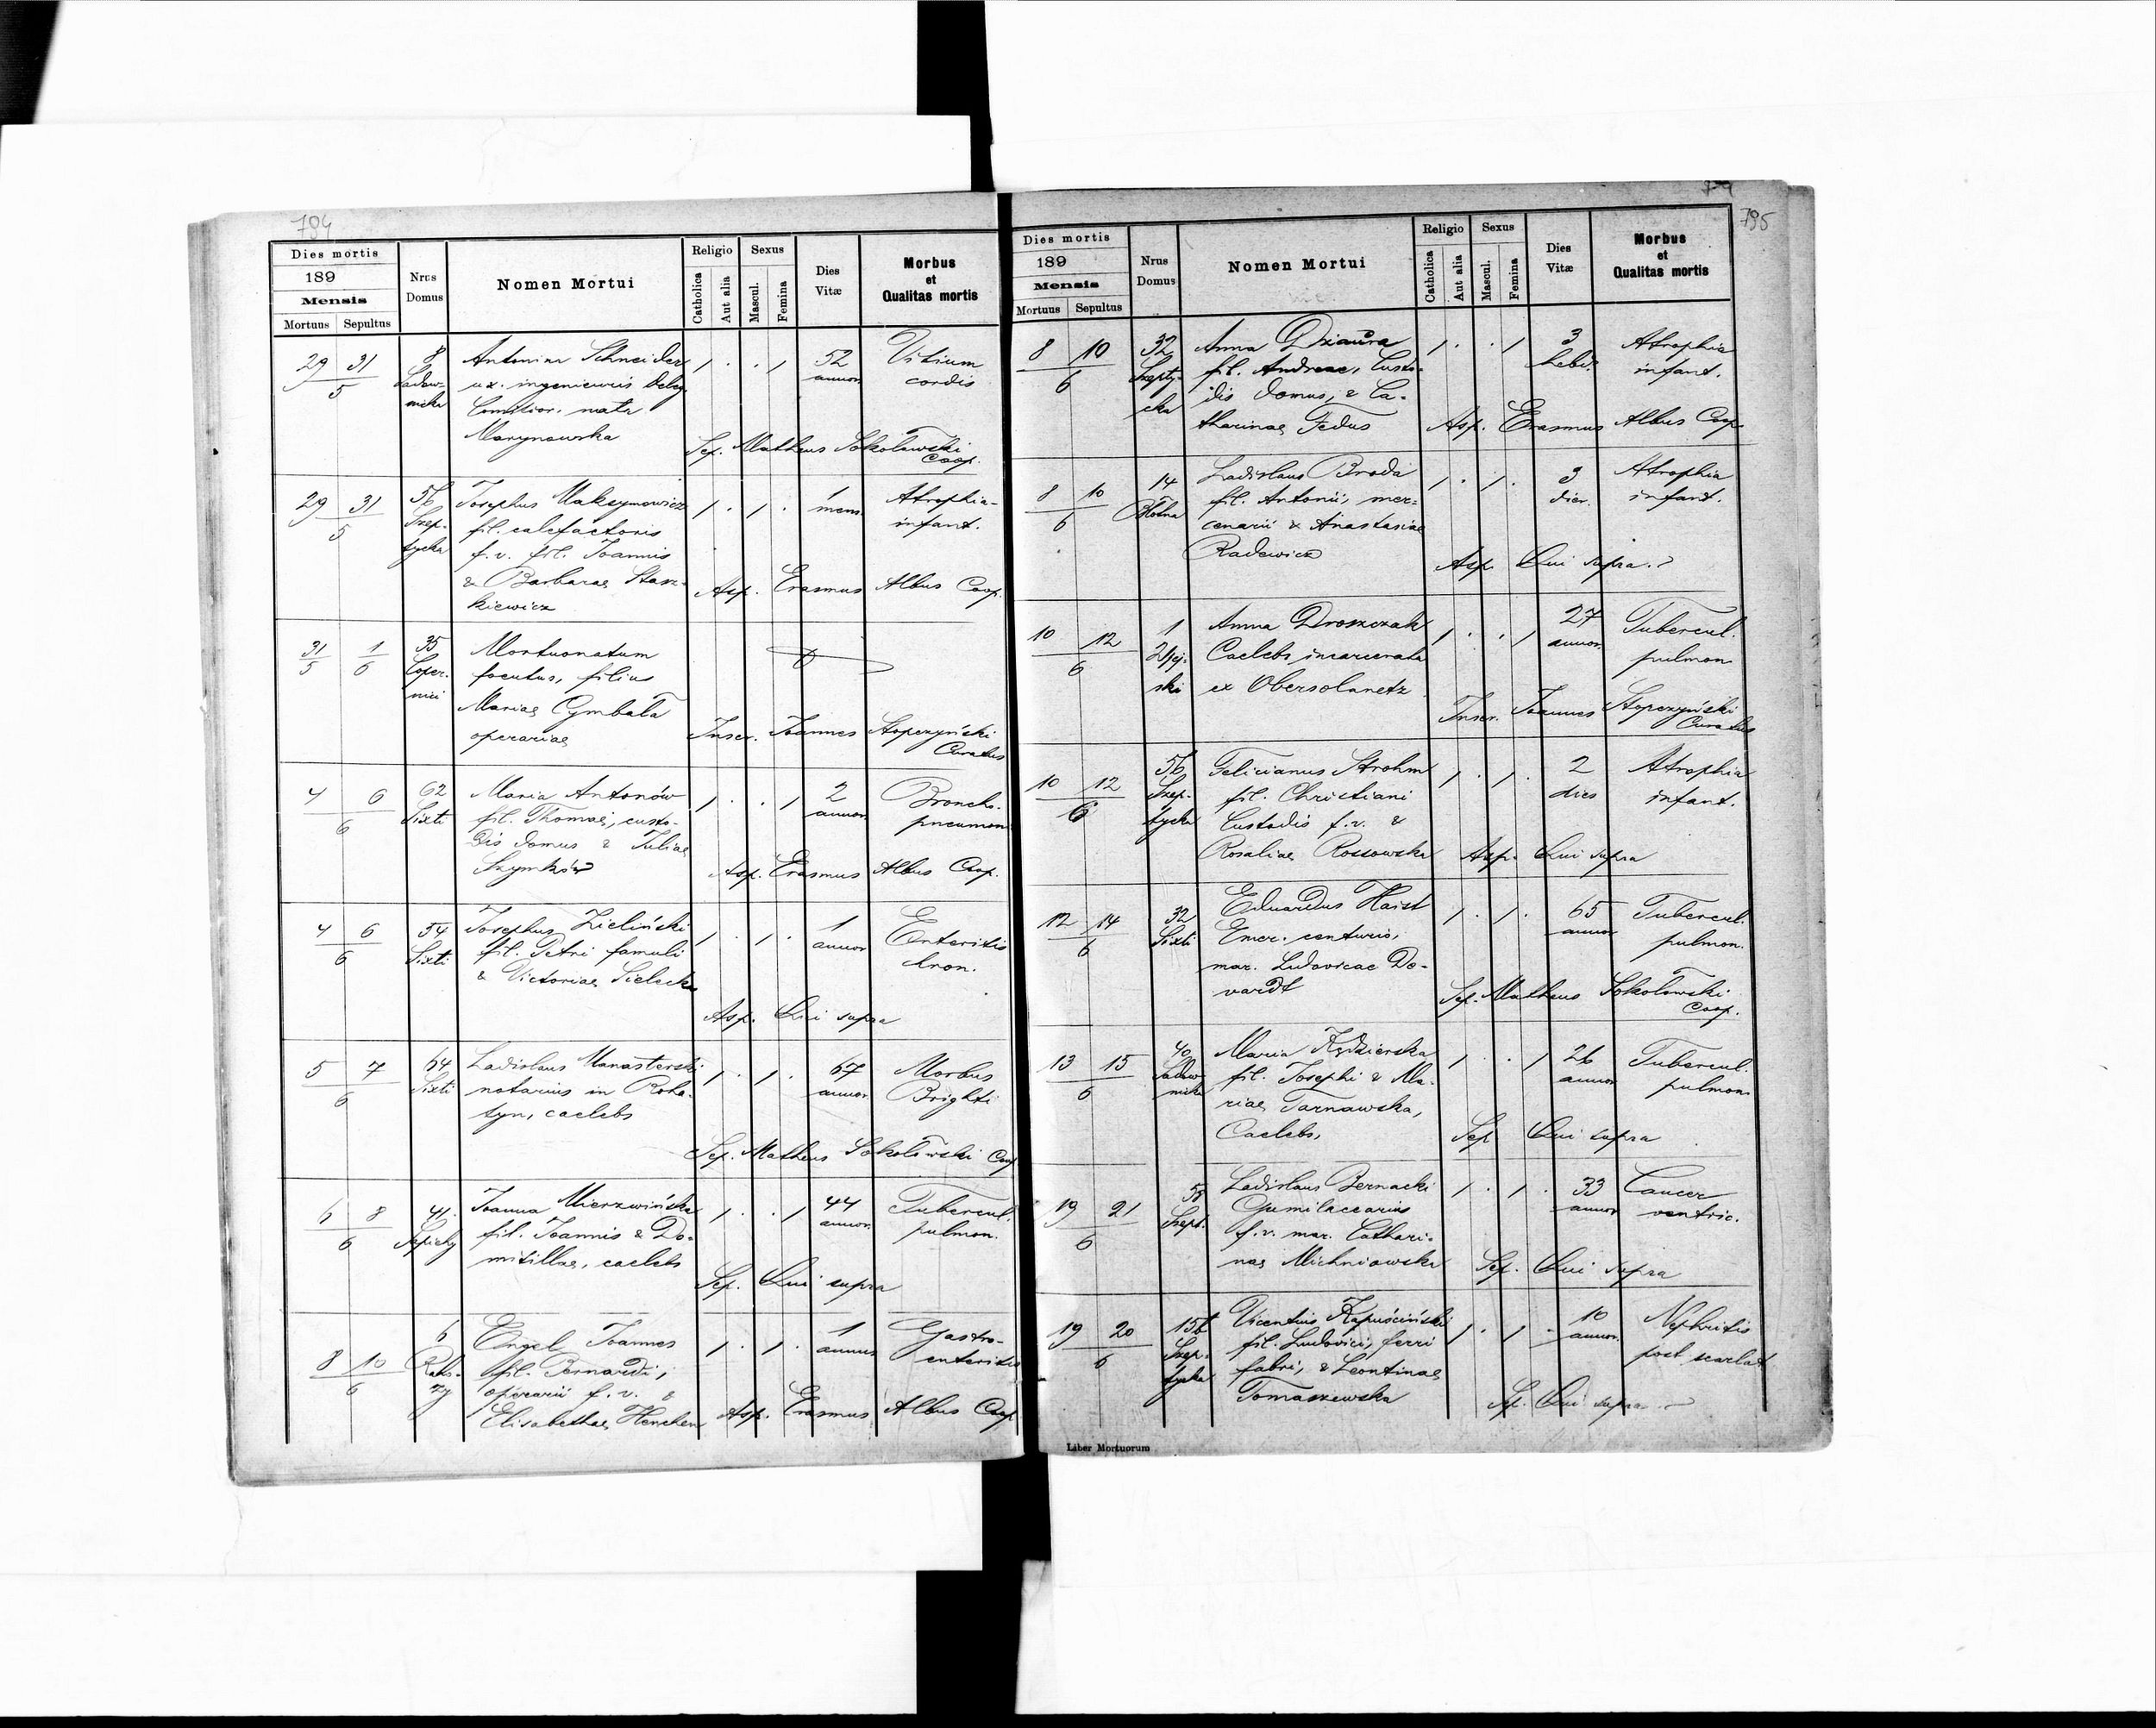 784
Dies mortis
189
Mensis
Mortuus Sepultus
Nrus Domus
Nomen Mortui
Religio
Catholica
Aut alia
Sexus
Mascul.
Femina
Dies Vitæ
Morbus et Qualitas mortis
29 31
5
8
Antonina Schneider
ux. ingenieuris
nata
Marynowska
52
annor.
Vitium
cordis
Sep. Matheus Sokołowski
Coop.
29 31
5
56
Szep-
tycka
Josephus Maksymowicz
fil. calefactoris
f.v. fil. Joannis
& Barbarae Stasz-
kiewicz
1
mens.
Atrophia
infant.
Asp. Erasmus Albus Coop.
31 1
5 6
35
Coper-
nici
Mortuonatum
foetus, filius
Mariae Cymbała
operariae
Inscr. Joannes Stopczyński
Curatus
4 6
6
62
Sixti
Maria Antonów
fil. Thomae, custo-
dis domus & Juliae
Szymków
2
annor.
Broncho-
pneumon.
Asp. Erasmus Albus Coop.
4 6
6
54
Sixti
Josephus Zieliński
fil. Petri famuli
& Victoriae Sielecka
1
annor
Enteritis
kron.
Asp. Qui supra
5 7
6
64
Sixti
Ladislaus Manasterski
notarius in Roha-
tyn, caelebs
67
annor.
Morbus
Brighti
Sep. Matheus Sokołowski Coop
6 8
6
41.
Sapiehy
Joanna Mierzwińska
fil. Joannis & Do-
mitillae, caelebs
44
annor.
Tubercul.
pulmon.
Sep. Qui supra
8 10
6
6
Engel Joannes
fil. Bernardi,
operarii f.v. &
Elisabethae Henchen
1
annus
Gastro-
enteritis
Asp. Erasmus Albus Coop
795
Dies mortis
189
Mensis
Mortuus Sepultus
Nrus Domus
Nomen Mortui
Religio
Catholica
Aut alia
Sexus
Mascul.
Femina
Dies Vitæ
Morbus et Qualitas mortis
8 10
6
32
Szepty-
cka
Anna Dziaura
fil. Andreae, Custo-
dis domus, & Ca-
tharinae Fedus
3
hebd.
Atrophia
infant.
Asp. Erasmus Albus Coop
8 10
6
14
Błotna
Ladislaus Broda
fil. Antonii, mer-
cenarii & Anastasiae
Radewicz
3
dier.
Atrophia
infant.
Asp. Qui supra.
10 12
6
1
Anna Droszczak
Caelebs incarcerata
ex Obersolanetz
27
annor.
Tubercul.
pulmon
Inscr. Joannes Stopczyński
Curatus
10 12
6
56
Szep-
tycka
Felicianus Strohm
fil. Christiani
Custodis f.v. &
Rosaliae Rossowska
2
dies
Atrophia
infant.
Asp. Qui supra
12 14
6
32
Sixti
Eduardus Haist
Emer. centurio,
mar. Ludovicae De-
vardt
65
annor
Tubercul.
pulmon.
Sep. Matheus Sokołowski
Coop.
13 15
6
40
Sadow-
nicka
Maria Kędzierska
fil. Josephi & Ma-
riae Tarnawska,
Caelebs,
26
annor
Tubercul.
pulmon.
Sep Qui supra
19 21
6
58
Szept.
Ladislaus Bernacki
Gumilaccarius
f.v. mar. Cathari-
nae Michniowska
33
annor
Cancer
ventric.
Sep. Qui supra
19 20
6
15b
Szep-
tycka
Vicentius Kapuściński
fil. Ludovici, ferri
fabri, & Leontinae
Tomaszewska
10
annor.
Nephritis
post scarlat
Sp. Qui supra
Liber Mortuorum